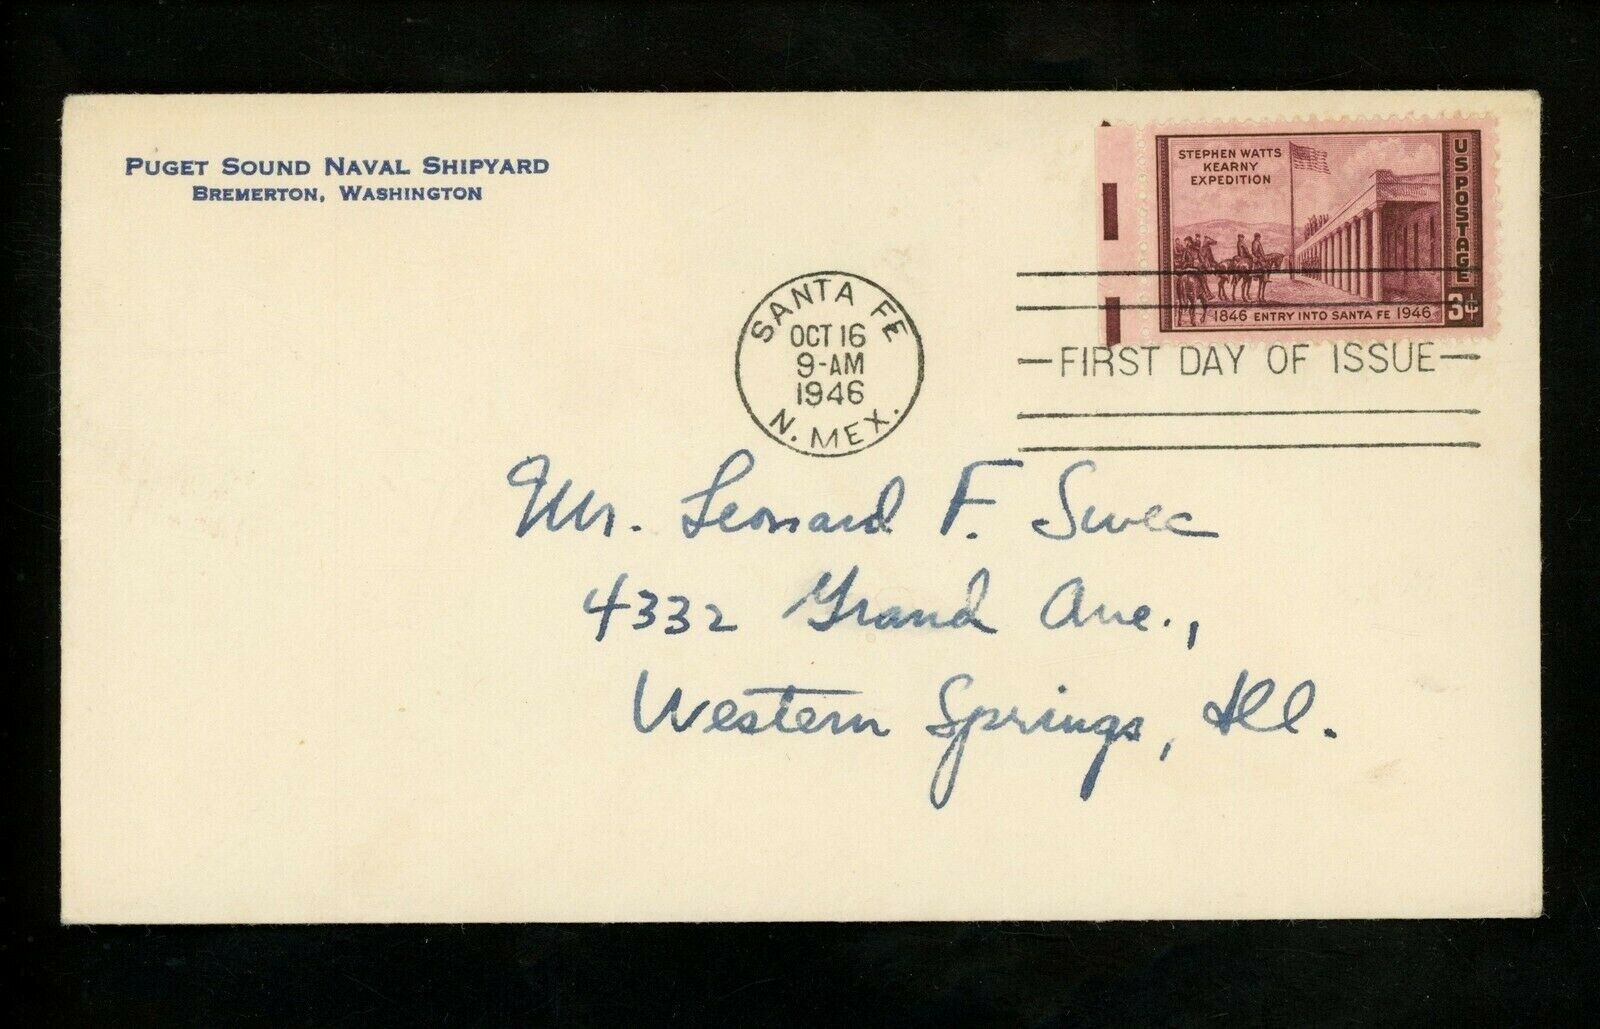 PUGET SOUND NAVAL SHIPYARD
BREMERTON, WASHINGTON
STEPHEN WATTS
KEARNY
EXPEDITION
U S POSTAGE
3¢
1846 ENTRY INTO SANTA FE 1946
SANTA FE
OCT 16
9-AM
1946
N. MEX.
FIRST DAY OF ISSUE
Mr. Leonard F. Swec
4332 Grand Ave.,
Western Springs, Ill.